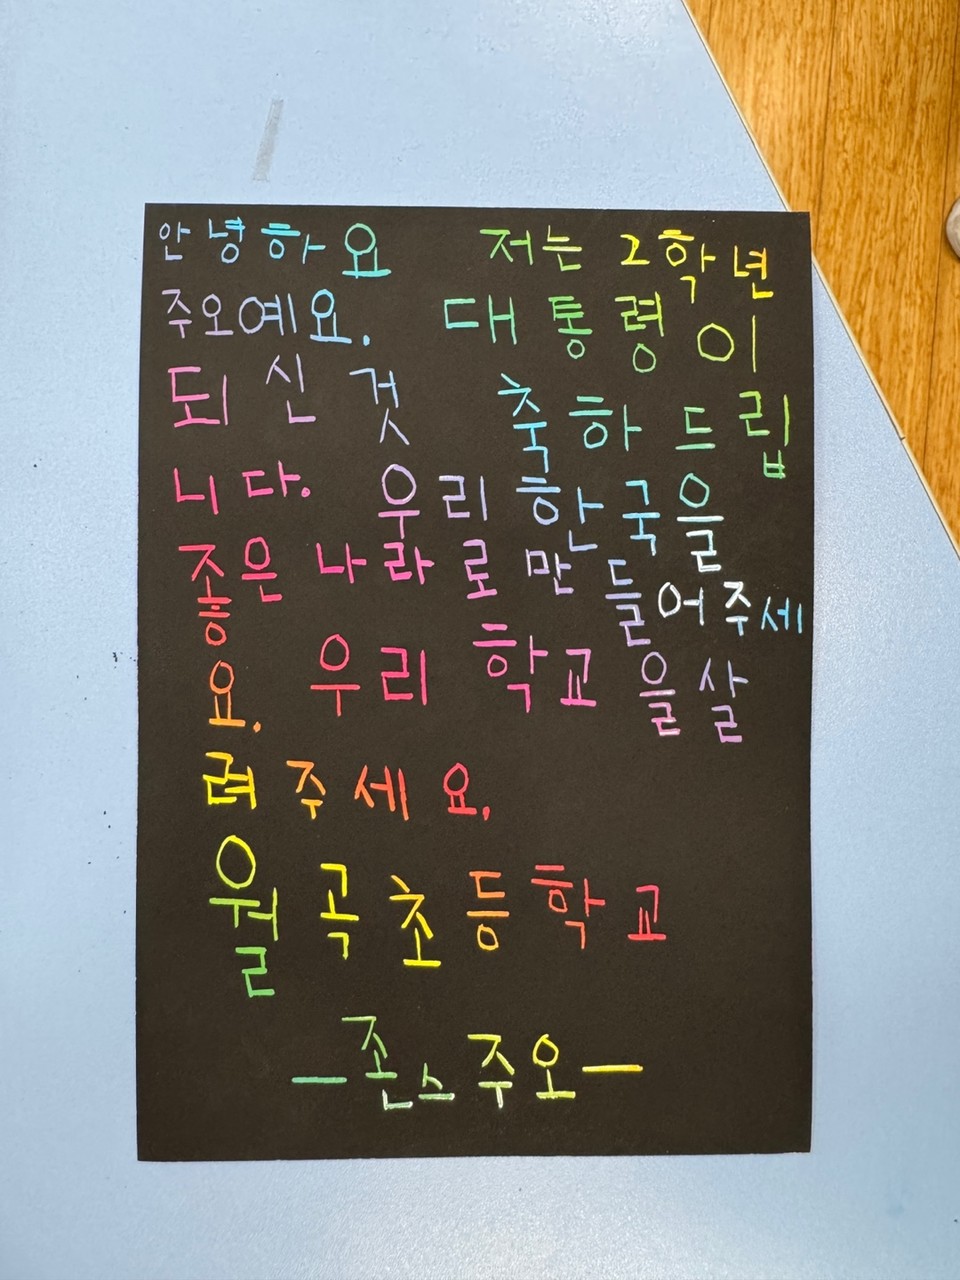 안녕하요 저는 2학년
주오예요. 대통령이
되신것 축하드립
니다. 우리 한국을
좋은 나라로 만들어주세
요. 우리 학교을 살
려주세요.
월곡초등학교
—존스주오—